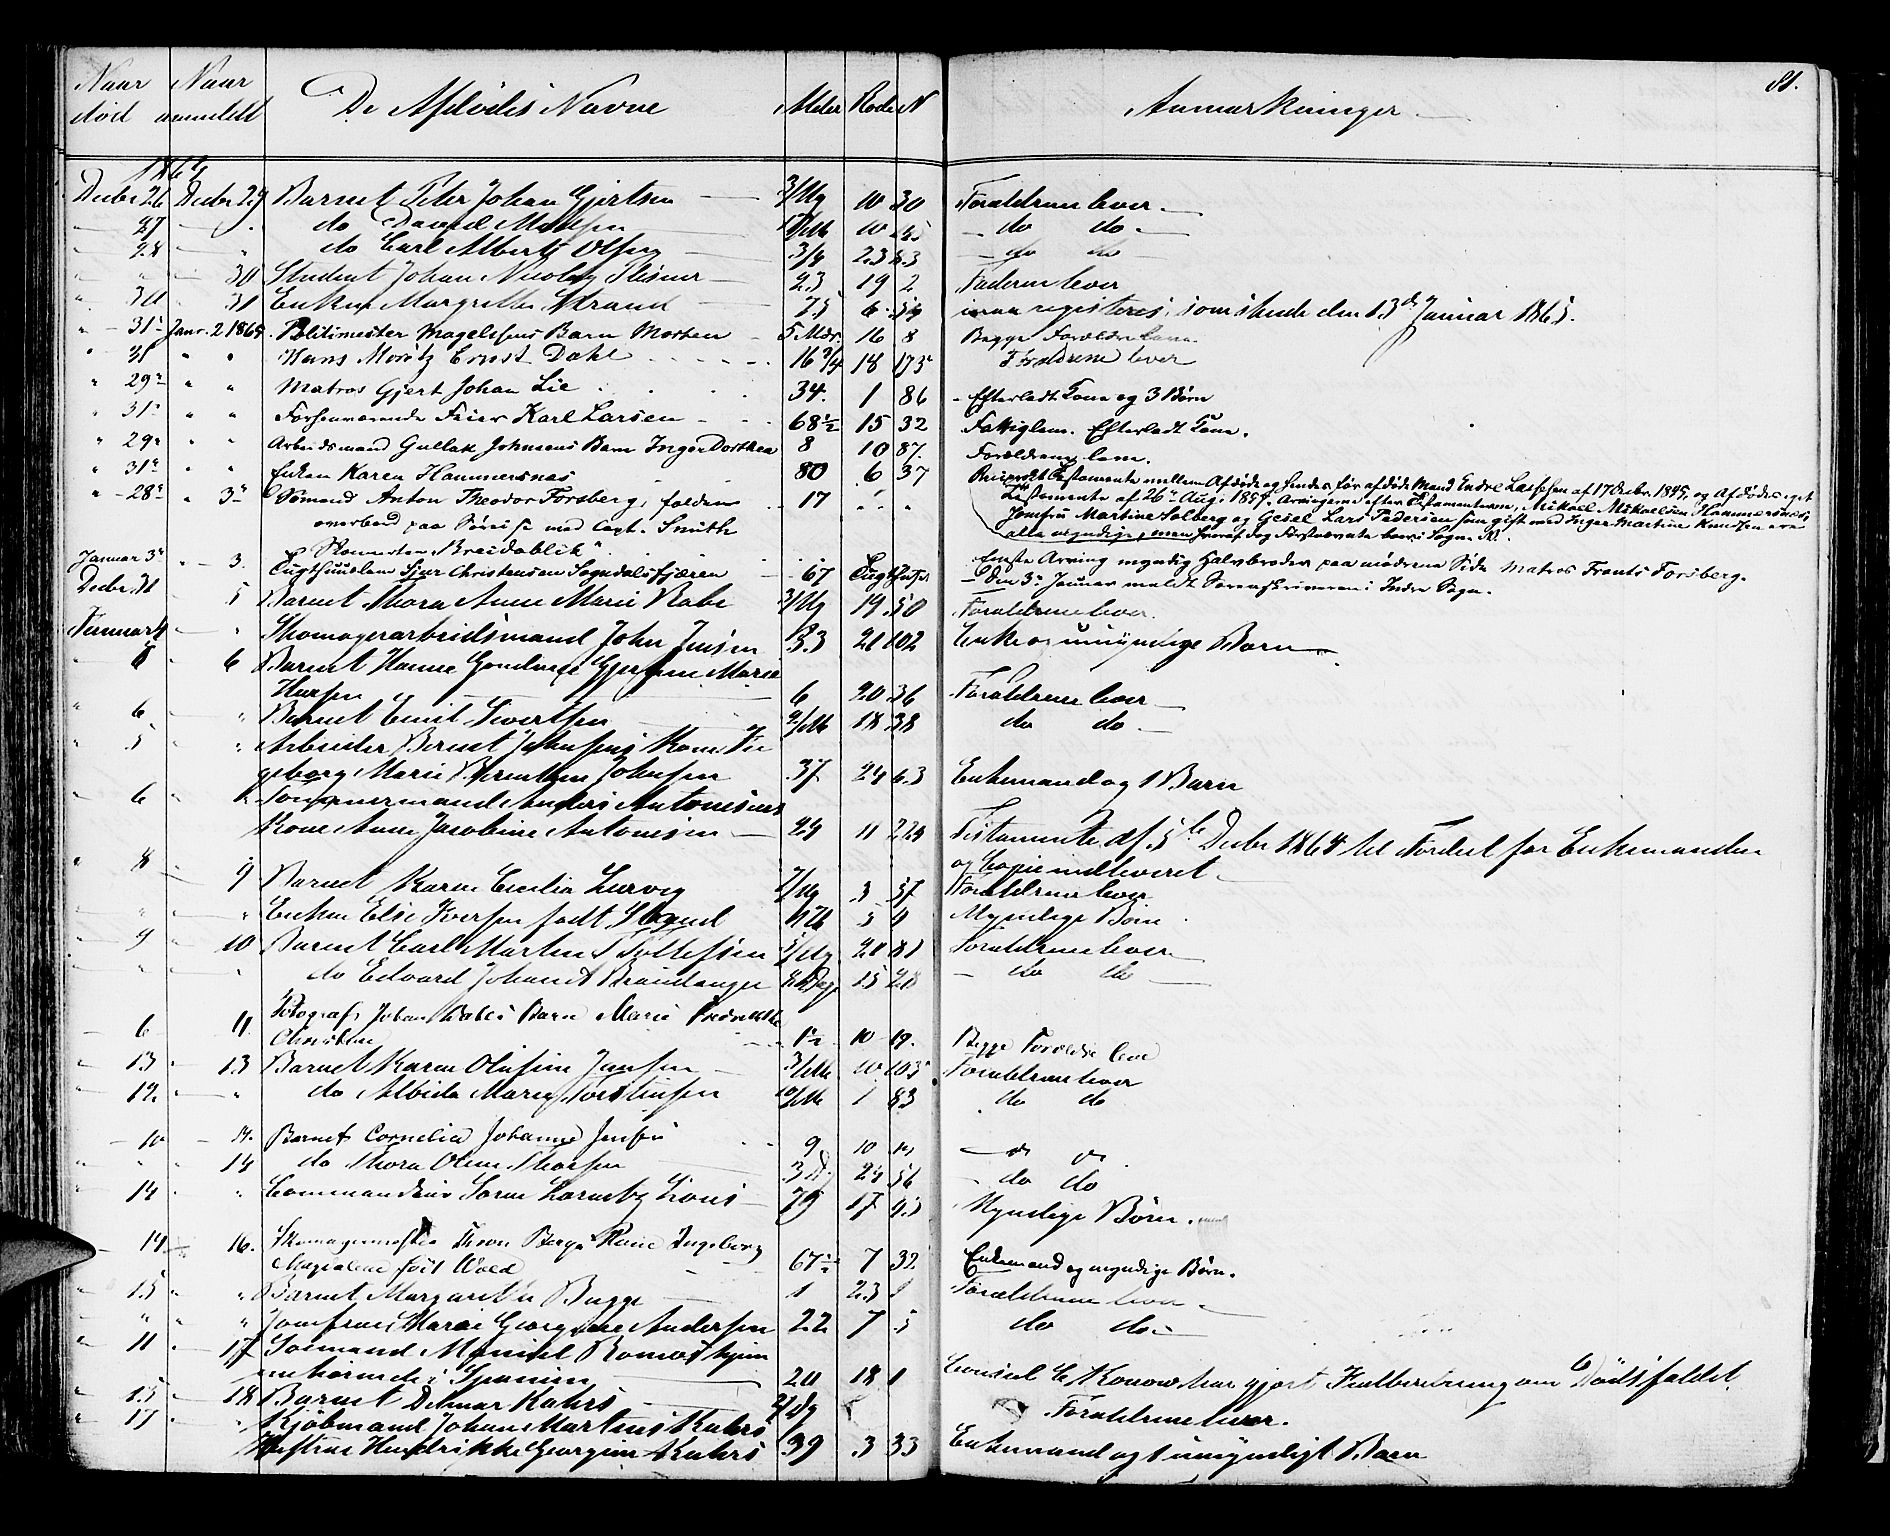 81.
Naar død Naar anmeldt De Afdødes Navne Alder Rode N Anmærkninger
1864
Decbr. 26 Decbr. 29 Barnet Peter Johan Gjertsen 3/Ug 10 30 Forældrene lever
27 " do David Madsen 10 do do
28 " do Carl Albert Olsen 3/4 23 do do
" 30 Student Johan Nicolay 23 19 2 Faderen lever
30 31 Enken Margrethe Strand 75 6 54 registreres, som skede den 13de Januar 1865.
31 Janr. 2 1865 Politimester Magelsens Barn Morten 5 Mdr. 16 8 Begge Forældre leve
31 " " Hans Moritz Ernst Dahl 16 3/4 18 173 Forældrene lever
29 " " Matros Gjert Johan Lie 34. 1 86 Efterladt Kone og 3 Børn
31 " " Forhenværende Feier Karl Larsen 68½ 15 32 Fattiglem. Efterladt Kone.
29 " " Arbeidsmand Gullak Johnsens Barn Inger Dorthea 8 10 87. Forældrene leve.
31 " " Enken Karen Hammersnæs 80 6 37 Reciprokt Testamente mellem Afdøde og hendes før afdøde Mand Endre Lassesen af 17 Decbr. 1845, og Afdødes eget
Testamente af 26 Aug. 1857. Arvingerne efter Testamenterne, Mikael Mikaelsen Hammersnæs
Jomfru Martine Solberg og Gesel Lars Pedersen som gift med Inger Martine Knudsen ere
alle myndige, men hvoraf dog Førstnævnte boer i Sogn.
28 3 Sømand Anton Theodor Forsberg, falden 17 " "
overbord paa Reise fra med Capt. Smith
Skonnerten "Breidablik". Eneste Arving myndig Halvbroder paa mødrene Side Matros Frants Forsberg.
Januar 3 3. Tugthuuslem Sjur Christensen Sogndalsfjæren 67 Tugthuset Den 3 Januar meldt Sorenskriveren i Indre Sogn.
Decbr. 31 5 Barnet Thora Anne Marie Rabe 3/Ug 19 50 Forældrene lever.
Januar 4 " Skomagerarbeidsmand John Jensen 33 21 102 Enke og umyndige Børn
5 6 Barnet Hanne Maria
Hansen 6 20 36 Forældrene lever
6 " Barnet Emil Sivertsen 2/M 18 38 do do
5 " Arbeider Bernt Johnsens Kone In
geborg Marie Berentsen Johnsen 37 24 63 Enkemand og 1 Barn
6 Tømmermand Anders Antonisens
Kone Anne Jacobine Antonisen 11 224 Testamente af 5te Decbr 1864 til Fordel for Enkemanden
og Copie indleveret
8 9 Barnet Karen Cecilia Lervig 2/Ug 3 57 Forældrene lever
" " Enken Else Iversen født 5 9 Myndige Børn
9 10 Barnet Carl Martin Tollefsen 21 81 Forældrene lever
" " do Edvard Johan Brandanger 8 Dage 15 28 do do
6 11. Fotograf Johan Dahls Barn Marie Fredrikke
Christine 1½ 10 19. Begge Forældre leve
13 13 Barnet Karen Olufine Jansen 3/M 10 103 Forældrene lever
12 " do Albida Marie Torstensen 10/M 1 83 do do
10 14. Barnet Cornelia Johanne Jensen 9 10
" 14 do Thora Oline Thorsen 3 D. 24 56 do do
14 " Commandeur Søren Lorentz Lous 79 17 43 Myndige Børn.
14 16. Skomagermester Berges Kone Ingeborg
Magdalene født Wold 67½ 7 32 Enkemand og myndige Børn.
15 " Barnet Margarethe Bugge 1 23 1 Forældrene lever
" " Jomfrue Marie Georgine Andersen 22 7 5 do do
11 17 Sømand
i Spanien 20 18 1 Consul C Konow har gjort Indberetning om Dødsfaldet.
15 18 Barnet Detmar Kahrs Forældrene lever.
17 " Kjøbmand Johan Martins Kahrs
Hustrue Hendrikke Georgine Kahrs 39 3 33 Enkemand og 1 umyndigt Barn